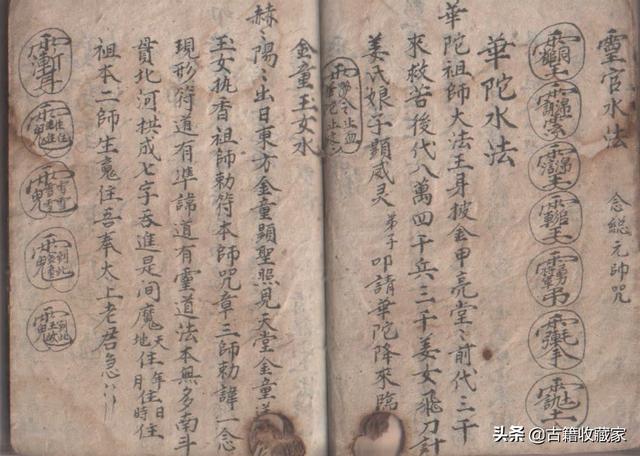 靈官水法
念総元帥咒
華陀水法
華陀祖師大法王身披金甲亮堂〻前代三千
來救苦後代八萬四千兵三千姜女飛刀計
姜氏娘子顯威灵 弟子 叩請華陀降來臨
金童玉女水
赫〻陽〻出日東方金童顯聖照見天堂金童
玉女执香祖師勅符本師咒章三師勅諱一念
現形符道有準諱道有靈道法本無多南斗
貫北河拱成七字吞進是间魔
天年日住
地月時住
祖本二師生魔住吾奉太上老君急
头条 @古籍收藏家